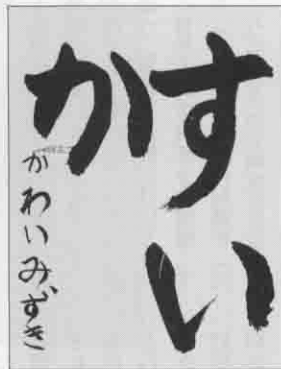 すい
か
かわいみずき